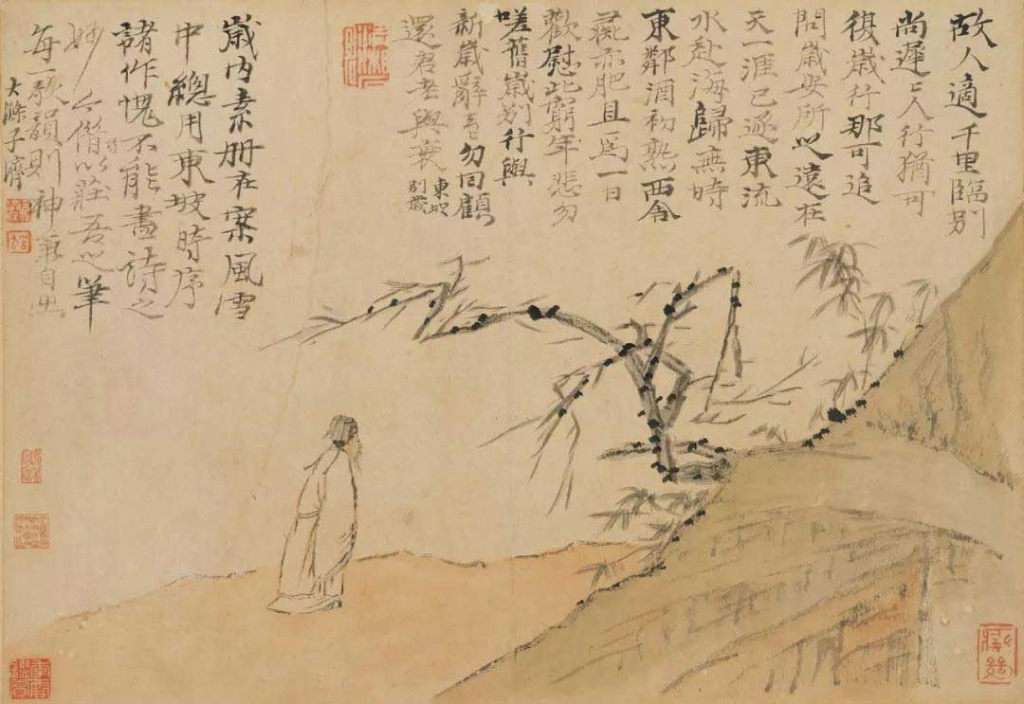 故人適千里臨別
尚遲〻人行猶可
復歲行那可追
問歲安所之遠在
天一涯已逐東流
水赴海歸無時
東鄰酒初熟西舍
彘亦肥且為一日
歡慰此窮年悲勿
嗟舊歲別行與
新歲辭去〻勿回顧
還君老與衰
東坡
別歲
歲內素册在案風雪
中總用東坡時序
諸作愧不能盡詩之
妙今借以莊吾之筆
每一歌韻則神氣自出
大滌子濟